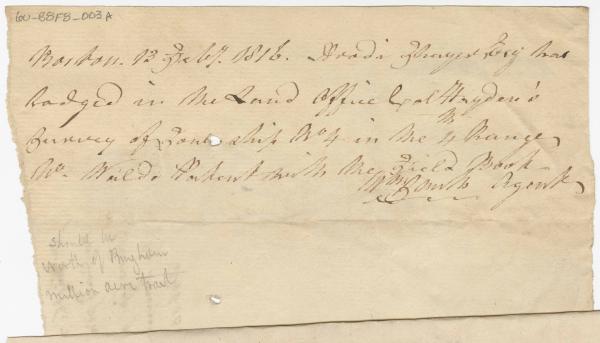 60-88F8-003A
Boston. 12 Feby. 1816. Thayer Esq has
Lodged in the Land Office Col Hayden's
Survey of Township No 4 in the 4 Range
Wo. Waldo Patent with the Field Book
Wm Smith Agent
should be
north of Bingham
million acre tract